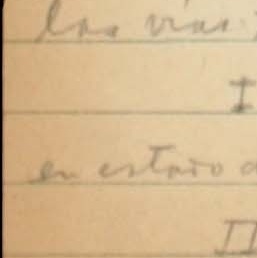 las vias
I
en estado d
II